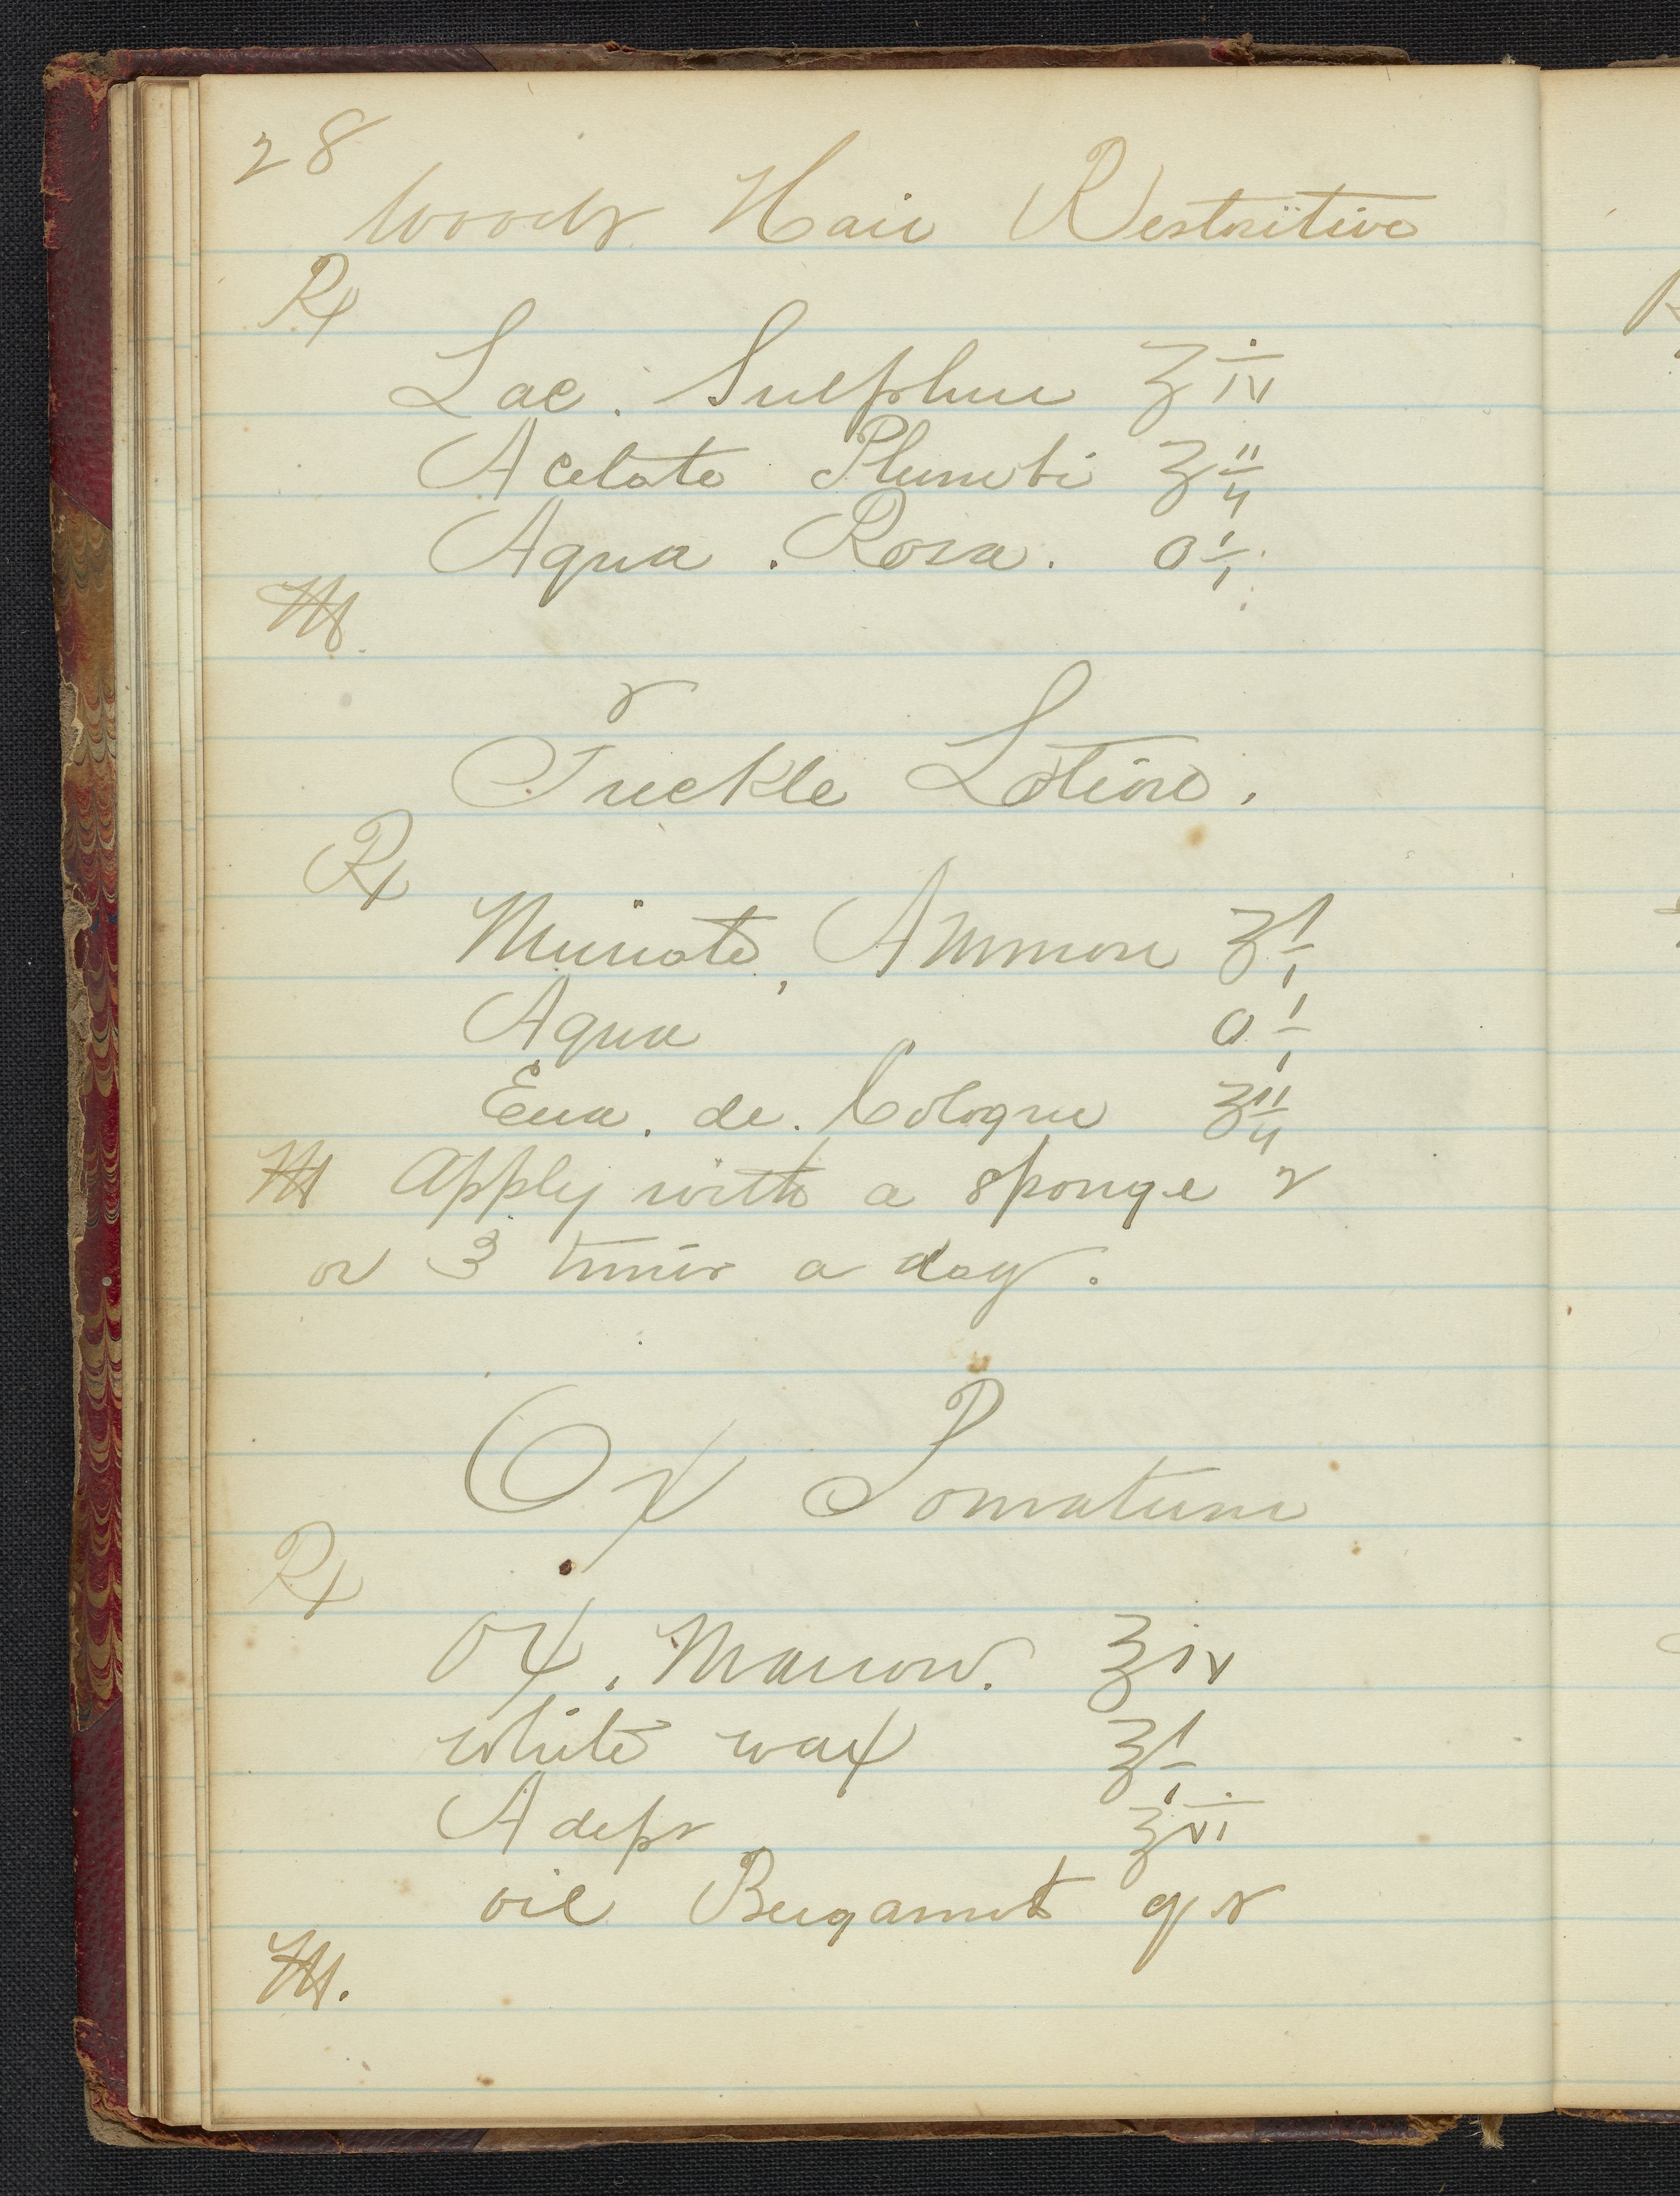 28
Woods Hair Restoritive
Rx
Lac. Sulphur ʒ iv
Acetate Plumbi ʒ ii
Aqua. Rosa. O i
M.
r
Freckle Lotion.
Rx
Muriate, Ammon ʒ i
Aqua O i
Eua. de. Cologne ʒ ii
M Apply with a sponge 2
or 3 times a day.
Ox Pomatum
Rx
Ox. Marrow. ℥ iv
white wax ℥ i
Adeps ℥ vi
oil Bergamot qs
M.